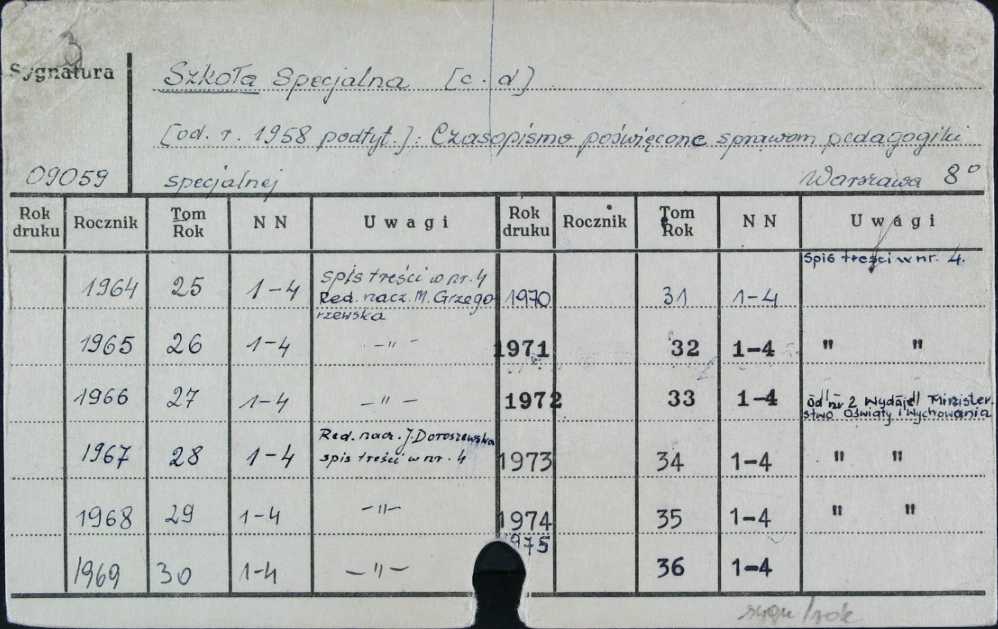 3
Sygnatura
Szkoła Specjalna [c.d]
[od. r. 1958 podtyt.]: Czasopismo poświęcone sprawom pedagogiki
09059 specjalnej Warszawa 8°
Rok druku Rocznik Tom Rok N N Uwagi Rok druku Rocznik Tom Rok N N Uwagi
1964 25 1-4 spis treści w nr. 4 Red. nacz. M. Grzegorzewska 1970 31 1-4 Spis treści w nr. 4.
1965 26 1-4 -"- 1971 32 1-4 " "
1966 27 1-4 -"- 1972 33 1-4 od nr 2 wydaje Minister-stwo Oświaty i Wychowania
1967 28 1-4 Red. nacz. J. Doroszewska spis treści w nr. 4 1973 34 1-4 " "
1968 29 1-4 -"- 1974 35 1-4 " "
1969 30 1-4 -"- 1975 36 1-4